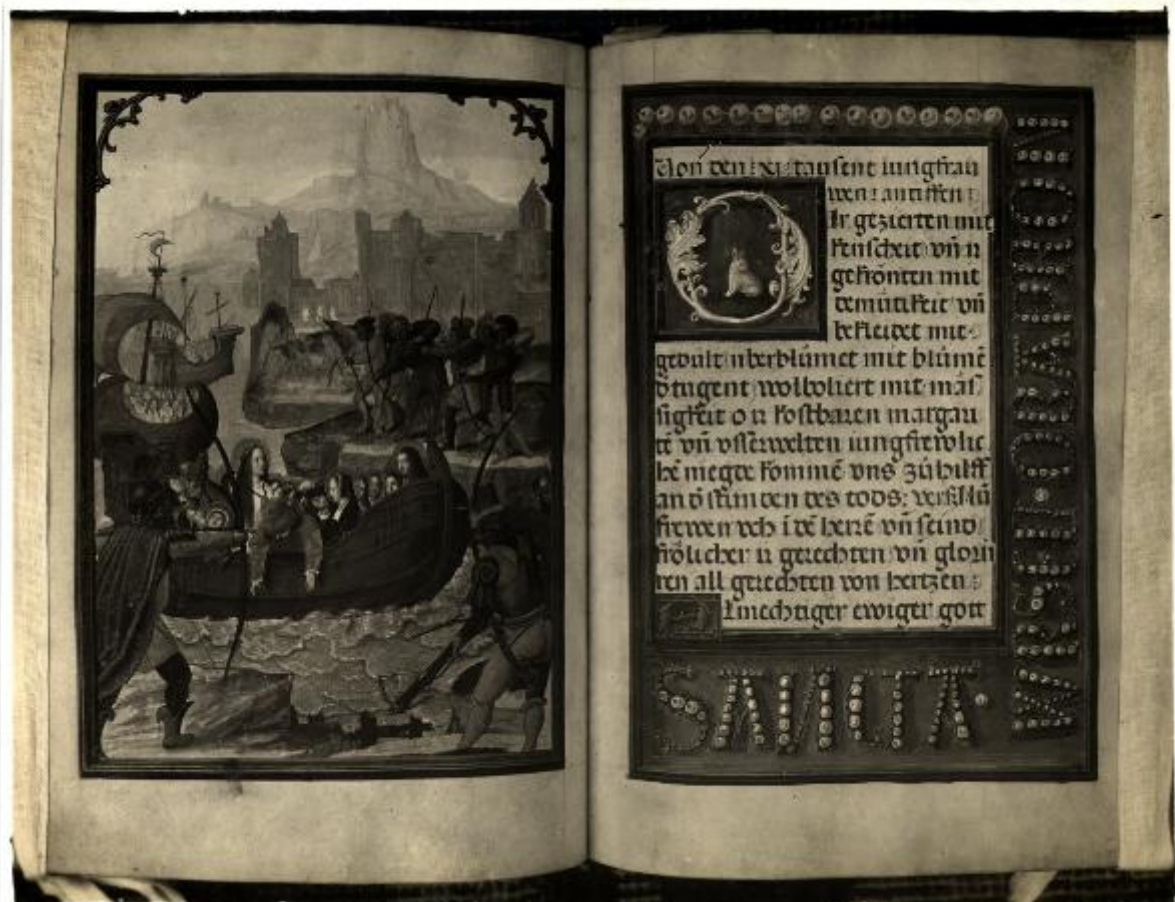 Von den xi tausent iungfrau
wen: antiffen:
Ir gezierten mit
kenscheit vn̄ ir
gekrönten mit
demütikeit vn̄
bekleidet mit
gedult vberblümet mit blümē
d tugent wolboliert mit mās
sigkeit o ir kostbaren margari
tē vn̄ vsserwelten iungfrewlic
hē megte kommē vns zü hilff
an d stunden des tods:
frewen vch ī dē herrē vn̄ seind
frölicher ir gerechten vn̄ glorir
ren all gerechten von hertzen:
Almechtiger ewiger gott
SANCTA